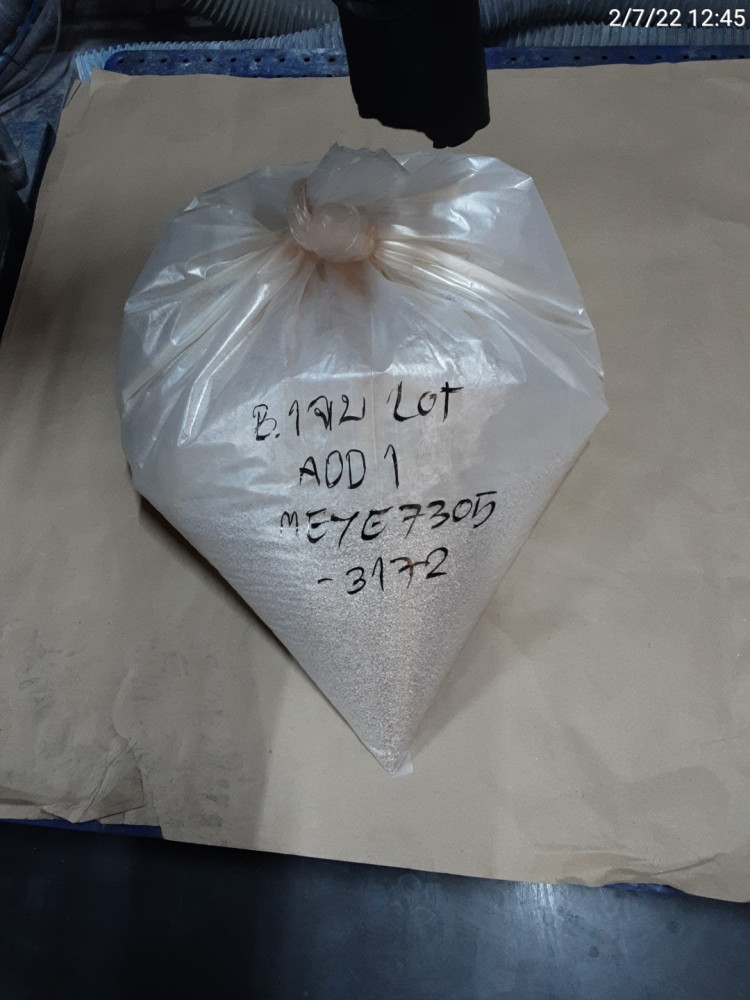 2/7/22 12:45
B.1 จบ Lot
ADD 1
MEYE7305
-3172